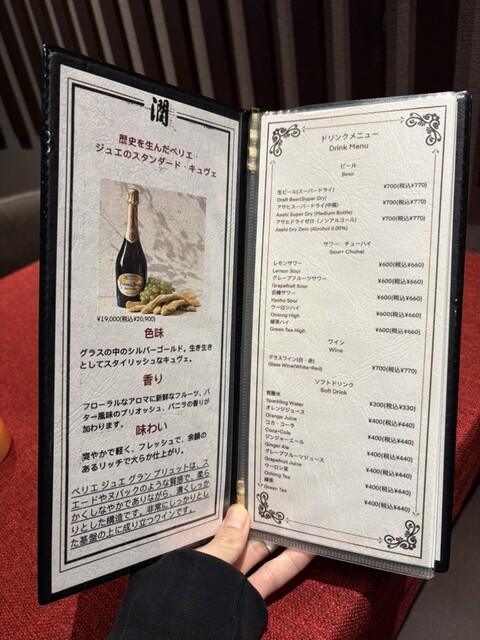 潤
歴史を生んだペリエ
ジュエのスタンダード・キュヴェ
¥19,000(税込¥20,900)
色味
グラスの中のシルバーゴールド。生き生き
としてスタイリッシュなキュヴェ。
香り
フローラルなアロマに新鮮なフルーツ、バ
ター風味のブリオッシュ、バニラの香りが
加わります。
味わい
爽やかで軽く、フレッシュで、余韻の
あるリッチで大らか仕上がり。
ペリエ ジュエ グラン ブリュットは、ス
エードやヌバックのような質感で、柔ら
かくしなやかでありながら、濃くしっか
りとした構造です。非常にしっかりとし
た基盤の上に成り立つワインです。
ドリンクメニュー
Drink Menu
ビール
Beer
生ビール(スーパードライ) ¥700(税込¥770)
Draft Beer(Super Dry)
アサヒスーパードライ(中瓶) ¥700(税込¥770)
Asahi Super Dry (Medium Bottle)
アサヒドライゼロ（ノンアルコール） ¥700(税込¥770)
Asahi Dry Zero (Alcohol 0.00%)
サワー・チューハイ
Sour・Chuhai
レモンサワー ¥600(税込¥660)
Lemon Sour
グレープフルーツサワー ¥600(税込¥660)
Grapefruit Sour
巨峰サワー ¥600(税込¥660)
Kyoho Sour
ウーロンハイ ¥600(税込¥660)
Oolong High
緑茶ハイ ¥600(税込¥660)
Green Tea High
ワイン
Wine
グラスワイン(白・赤) ¥700(税込¥770)
Glass Wine(White・Red)
ソフトドリンク
Soft Drink
炭酸水 ¥300(税込¥330)
Sparkling Water
オレンジジュース ¥400(税込¥440)
Orange Juice
コカ・コーラ ¥400(税込¥440)
Coca・Cola
ジンジャーエール ¥400(税込¥440)
Ginger Ale
グレープフルーツジュース ¥400(税込¥440)
Grapefruit Juice
ウーロン茶 ¥400(税込¥440)
Oolong Tea
緑茶 ¥400(税込¥440)
Green Tea